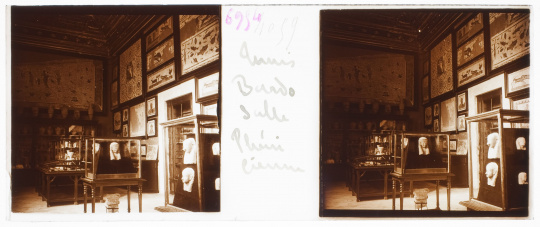 6954
Tunis
Bardo
Salle
Phéni
cienne